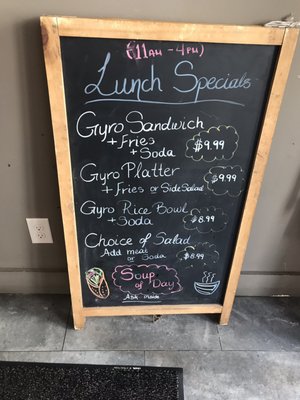 (11AM - 4PM)
Lunch Specials
Gyro Sandwich
+ Fries
+ Soda
$9.99
Gyro Platter
+ Fries or Side Salad
$9.99
Gyro Rice Bowl
+ Soda
$8.99
Choice of Salad
Add meat
or Soda
$8.99
Soup of Day
Ask Inside